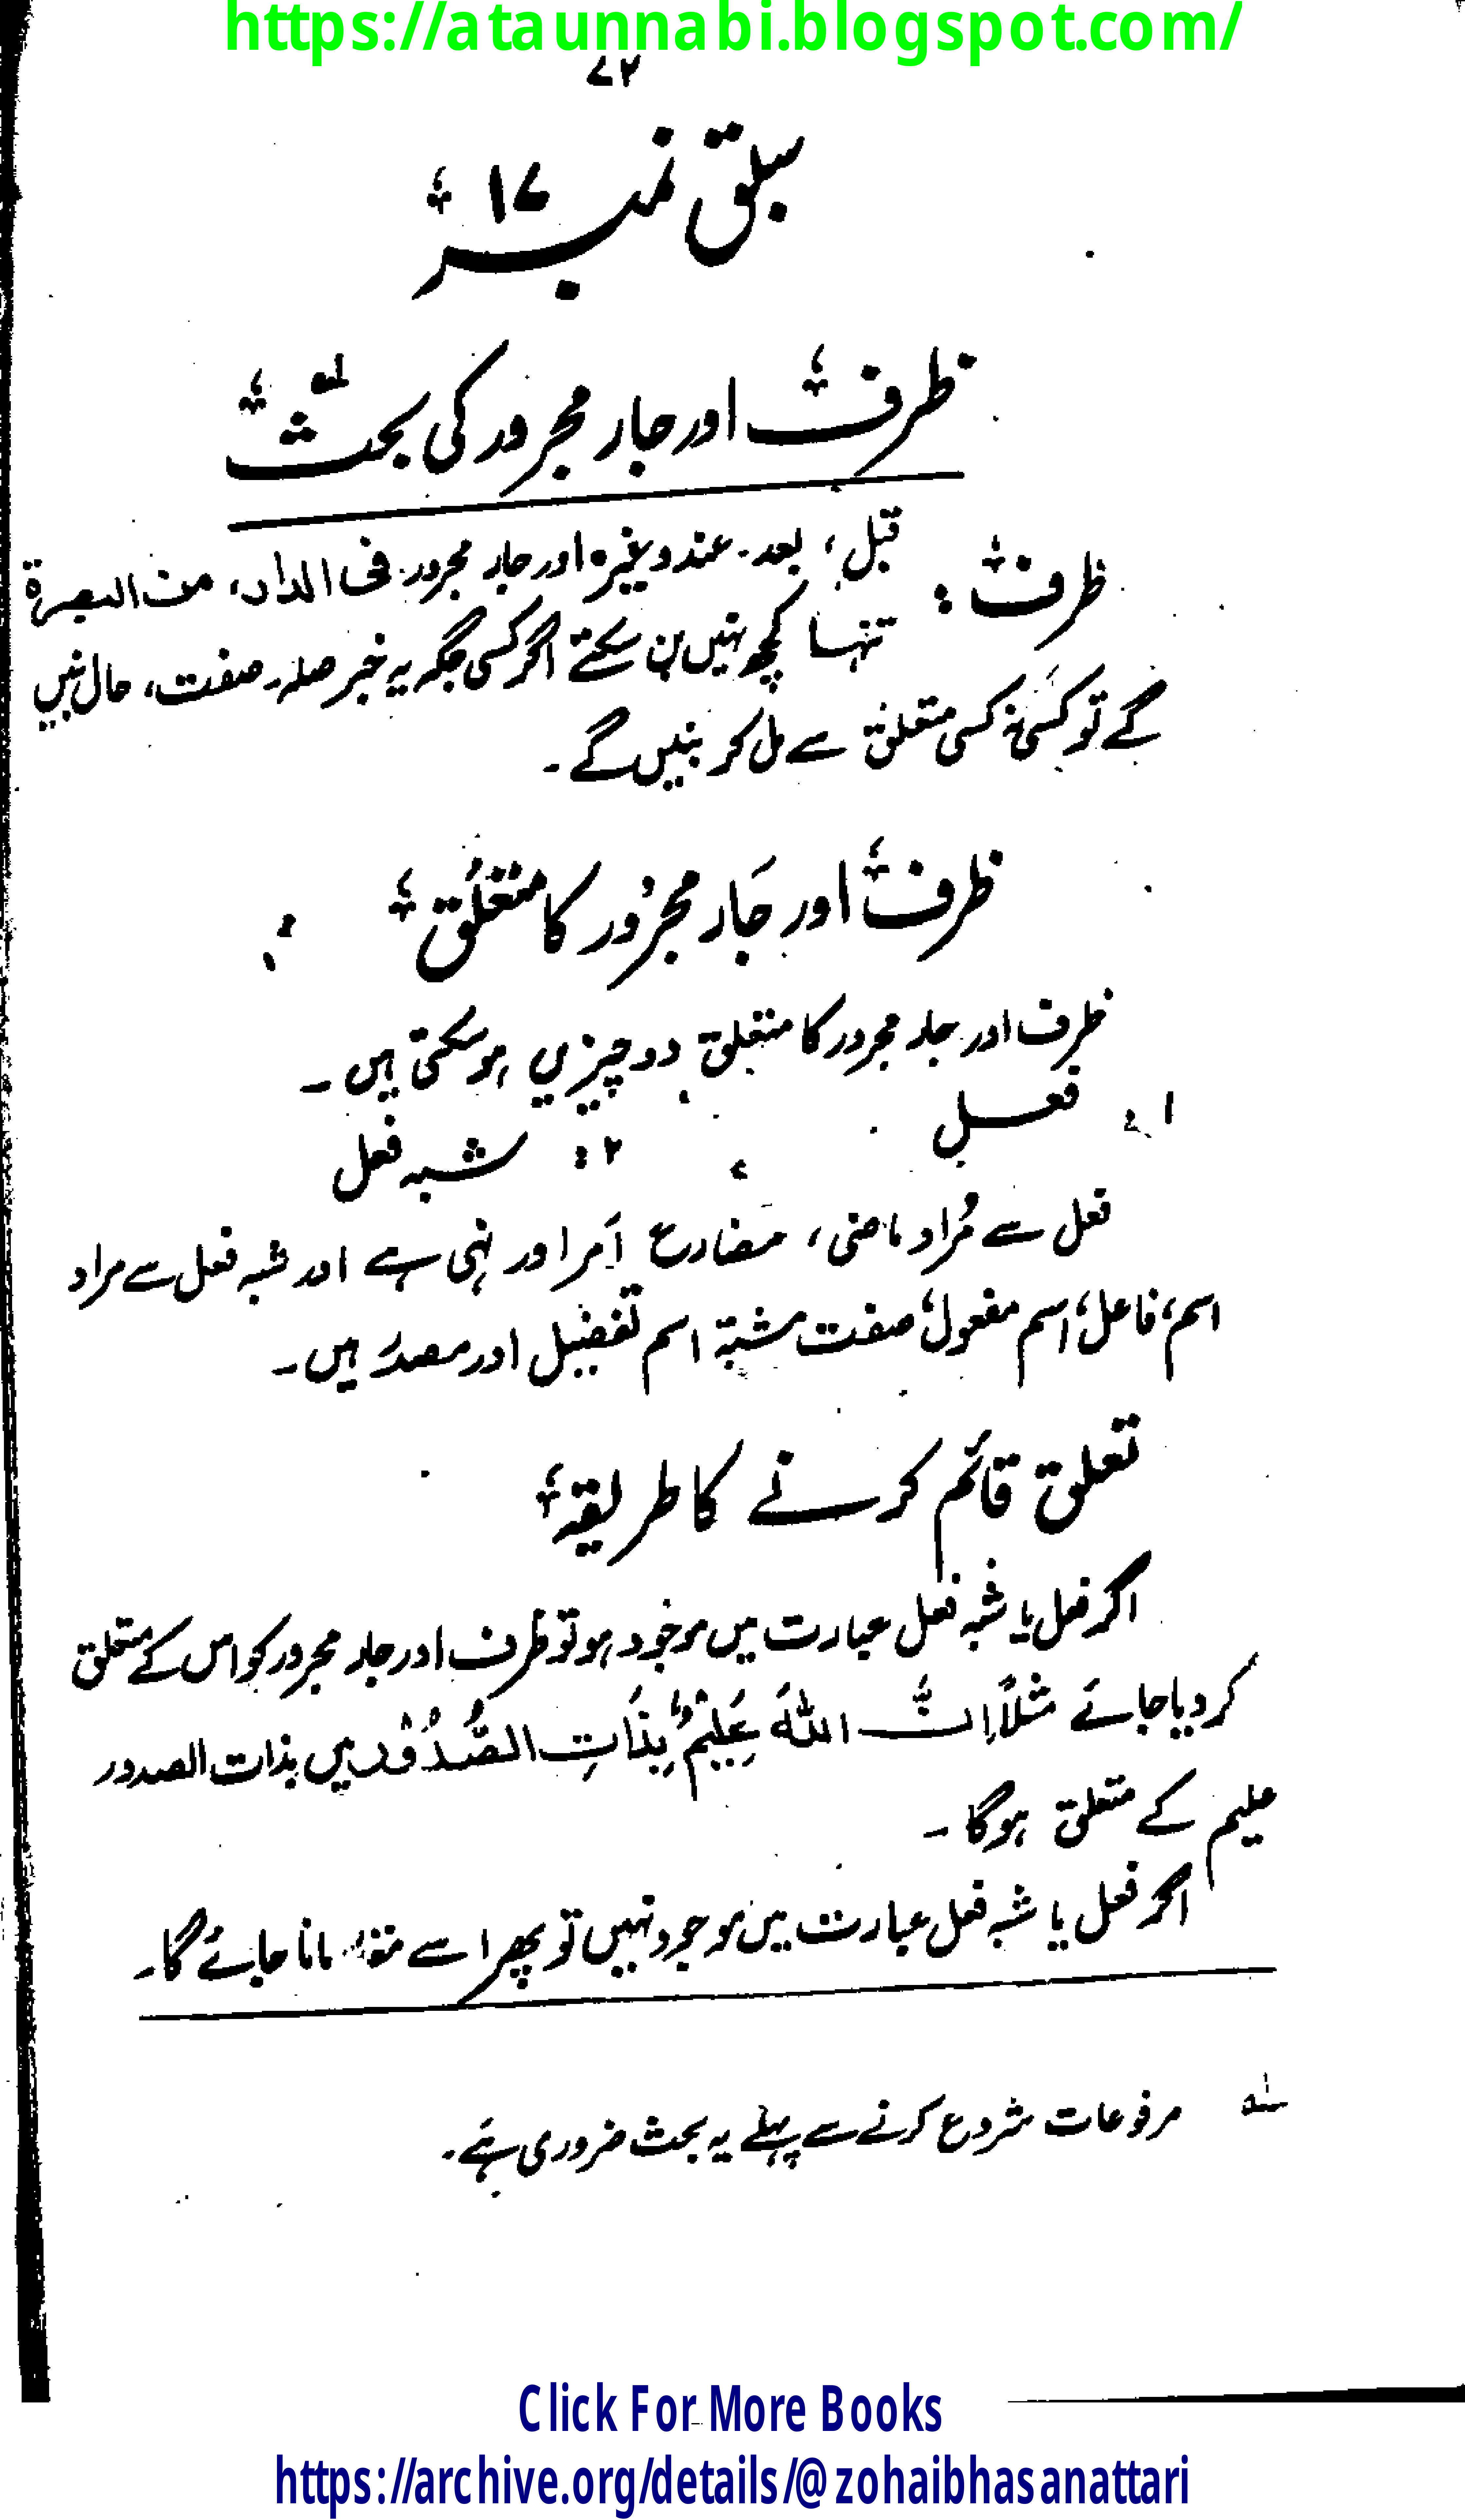 https://ataunnabi.blogspot.com/
۷۲
سبق نمبر ۱۷
ظرف اور جار مجرور کی بحث
ظرف : قبل، بعد۔ عند وغیرہ اور جار مجرور۔ فی الدار، من البصرة
تنہا کچھ نہیں بن سکتے اگر کسی جگہ یہ خبر صلہ۔ صفت، حال بنیں
گے تو کسی نہ کسی متعلق سے مل کر بنیں گے۔
ظرف اور جَار مجرُور کا متعلق :
ظرف اور جار مجرور کا متعلق دو چیزیں ہو سکتی ہیں۔
۱ : فعل ، ۲ : شبہ فعل
فعل سے مُراد ماضی، مضارع اَمر اور نہی ہے اور شبہ فعل سے مراد
اسم فاعل، اسم مفعول، صفت مشبہ اسم تفضیل اور مصدر ہیں۔
تعلق قائم کرنے کا طریقہ
اگر فعل یا شبہ فعل عبارت میں موجود ہو تو ظرف اور جار مجرور کو اس کے متعلق
کر دیا جائے مثلاً اِنَّ اللّٰہَ عَلِیْمٌ بِذَاتِ الصُّدُوْر میں بذات الصدور
علیم کے متعلق ہوگا۔
اگر فعل یا شبہ فعل عبارت میں موجود نہیں تو پھر اسے مانا جائے گا۔
مرفوعات شروع کرنے سے پہلے یہ بحث ضروری ہے۔
Click For More Books
https://archive.org/details/@zohaibhasanattari